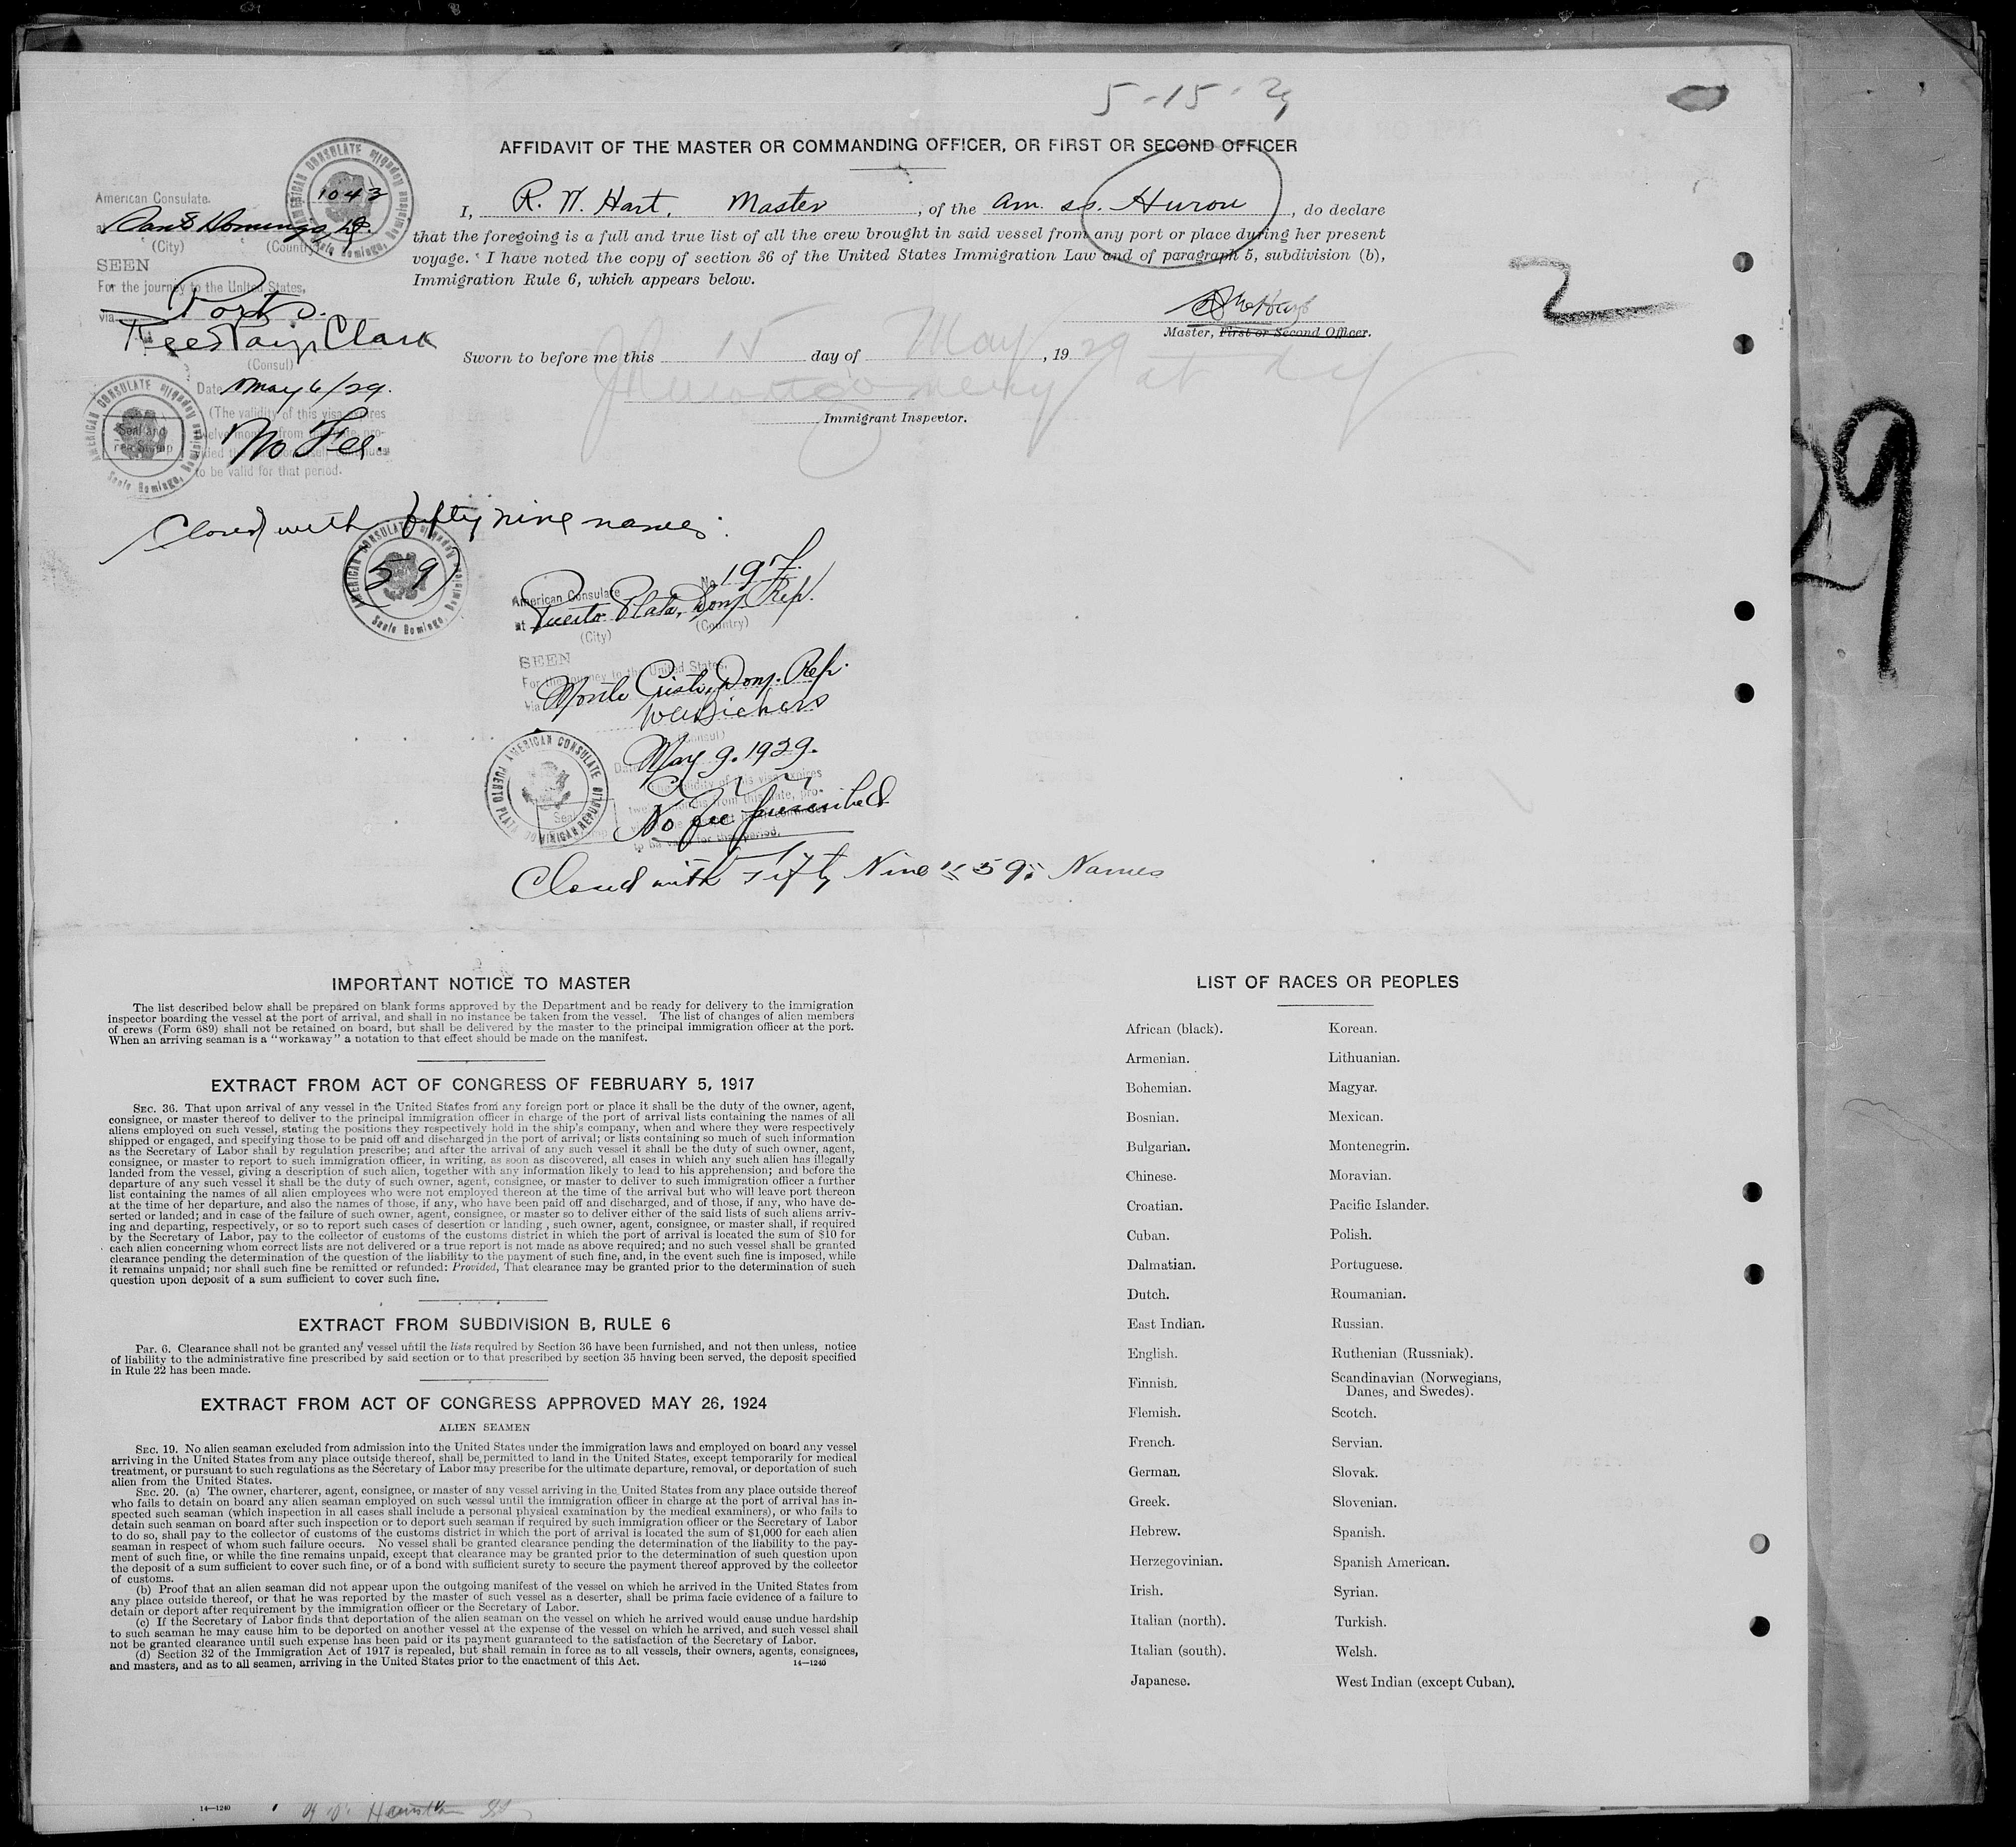 5-15-29
AFFIDAVIT OF THE MASTER OR COMMANDING OFFICER, OR FIRST OR SECOND OFFICER
I, R. W. Hart, Master, of the Am. ss. Huron, do declare
that the foregoing is a full and true list of all the crew brought in said vessel from any port or place during her present
voyage. I have noted the copy of section 36 of the United States Immigration Law and of paragraph 5, subdivision (b),
Immigration Rule 6, which appears below.
Master, First or Second Officer.
Sworn to before me this 15 day of May, 1929
at
Immigrant Inspector.
2
29
AMERICAN CONSULATE
1043
American Consulate
at Santo Domingo, D.R.
(City) (Country)
SEEN
For the journey to the United States,
via Ports.
Reed Paige Clark
(Consul)
Date May 6/29.
(The validity of this visa expires
twelve months from this date, pro-
No Fee.
to be valid for that period.
AMERICAN CONSULATE
Santo Domingo,
Seal and
Fee Stamp
Closed with fifty nine names.
AMERICAN CONSULATE
Santo Domingo,
(59)
No. 197
American Consulate
at Puerto Plata, Dom. Rep.
(City) (Country)
SEEN
For the journey to the United States,
via Monte Cristi, Dom. Rep.
(Consul)
Date May 9. 1929.
The validity of this visa expires
twelve months from this date, pro-
No fee prescribed
to be valid for that period.
AMERICAN CONSULATE
PUERTO PLATA DOMINICAN REPUBLIC
Seal
Closed with Fifty Nine "59" Names
IMPORTANT NOTICE TO MASTER
The list described below shall be prepared on blank forms approved by the Department and be ready for delivery to the immigration
inspector boarding the vessel at the port of arrival, and shall in no instance be taken from the vessel. The list of changes of alien members
of crews (Form 689) shall not be retained on board, but shall be delivered by the master to the principal immigration officer at the port.
When an arriving seaman is a "workaway" a notation to that effect should be made on the manifest.
EXTRACT FROM ACT OF CONGRESS OF FEBRUARY 5, 1917
SEC. 36. That upon arrival of any vessel in the United States from any foreign port or place it shall be the duty of the owner, agent,
consignee, or master thereof to deliver to the principal immigration officer in charge of the port of arrival lists containing the names of all
aliens employed on such vessel, stating the positions they respectively hold in the ship's company, when and where they were respectively
shipped or engaged, and specifying those to be paid off and discharged in the port of arrival; or lists containing so much of such information
as the Secretary of Labor shall by regulation prescribe; and after the arrival of any such vessel it shall be the duty of such owner, agent,
consignee, or master to report to such immigration officer, in writing, as soon as discovered, all cases in which any such alien has illegally
landed from the vessel, giving a description of such alien, together with any information likely to lead to his apprehension; and before the
departure of any such vessel it shall be the duty of such owner, agent, consignee, or master to deliver to such immigration officer a further
list containing the names of all alien employees who were not employed thereon at the time of the arrival but who will leave port thereon
at the time of her departure, and also the names of those, if any, who have been paid off and discharged, and of those, if any, who have de-
serted or landed; and in case of the failure of such owner, agent, consignee, or master so to deliver either of the said lists of such aliens arriv-
ing and departing, respectively, or so to report such cases of desertion or landing, such owner, agent, consignee, or master shall, if required
by the Secretary of Labor, pay to the collector of customs of the customs district in which the port of arrival is located the sum of $10 for
each alien concerning whom correct lists are not delivered or a true report is not made as above required; and no such vessel shall be granted
clearance pending the determination of the question of the liability to the payment of such fine, and, in the event such fine is imposed, while
it remains unpaid; nor shall such fine be remitted or refunded: Provided, That clearance may be granted prior to the determination of such
question upon deposit of a sum sufficient to cover such fine.
EXTRACT FROM SUBDIVISION B, RULE 6
PAR. 6. Clearance shall not be granted any vessel until the lists required by Section 36 have been furnished, and not then unless, notice
of liability to the administrative fine prescribed by said section or to that prescribed by section 35 having been served, the deposit specified
in Rule 22 has been made.
EXTRACT FROM ACT OF CONGRESS APPROVED MAY 26, 1924
ALIEN SEAMEN
SEC. 19. No alien seaman excluded from admission into the United States under the immigration laws and employed on board any vessel
arriving in the United States from any place outside thereof, shall be permitted to land in the United States, except temporarily for medical
treatment, or pursuant to such regulations as the Secretary of Labor may prescribe for the ultimate departure, removal, or deportation of such
alien from the United States.
SEC. 20. (a) The owner, charterer, agent, consignee, or master of any vessel arriving in the United States from any place outside thereof
who fails to detain on board any alien seaman employed on such vessel until the immigration officer in charge at the port of arrival has in-
spected such seaman (which inspection in all cases shall include a personal physical examination by the medical examiners), or who fails to
detain such seaman on board after such inspection or to deport such seaman if required by such immigration officer or the Secretary of Labor
to do so, shall pay to the collector of customs of the customs district in which the port of arrival is located the sum of $1,000 for each alien
seaman in respect of whom such failure occurs. No vessel shall be granted clearance pending the determination of the liability to the pay-
ment of such fine, or while the fine remains unpaid, except that clearance may be granted prior to the determination of such question upon
the deposit of a sum sufficient to cover such fine, or of a bond with sufficient surety to secure the payment thereof approved by the collector
of customs.
(b) Proof that an alien seaman did not appear upon the outgoing manifest of the vessel on which he arrived in the United States from
any place outside thereof, or that he was reported by the master of such vessel as a deserter, shall be prima facie evidence of a failure to
detain or deport after requirement by the immigration officer or the Secretary of Labor.
(c) If the Secretary of Labor finds that deportation of the alien seaman on the vessel on which he arrived would cause undue hardship
to such seaman he may cause him to be deported on another vessel at the expense of the vessel on which he arrived, and such vessel shall
not be granted clearance until such expense has been paid or its payment guaranteed to the satisfaction of the Secretary of Labor.
(d) Section 32 of the Immigration Act of 1917 is repealed, but shall remain in force as to all vessels, their owners, agents, consignees,
and masters, and as to all seamen, arriving in the United States prior to the enactment of this Act.
14—1240
LIST OF RACES OR PEOPLES
African (black). Korean.
Armenian. Lithuanian.
Bohemian. Magyar.
Bosnian. Mexican.
Bulgarian. Montenegrin.
Chinese. Moravian.
Croatian. Pacific Islander.
Cuban. Polish.
Dalmatian. Portuguese.
Dutch. Roumanian.
East Indian. Russian.
English. Ruthenian (Russniak).
Finnish. Scandinavian (Norwegians,
Danes, and Swedes).
Flemish. Scotch.
French. Servian.
German. Slovak.
Greek. Slovenian.
Hebrew. Spanish.
Herzegovinian. Spanish American.
Irish. Syrian.
Italian (north). Turkish.
Italian (south). Welsh.
Japanese. West Indian (except Cuban).
14—1240